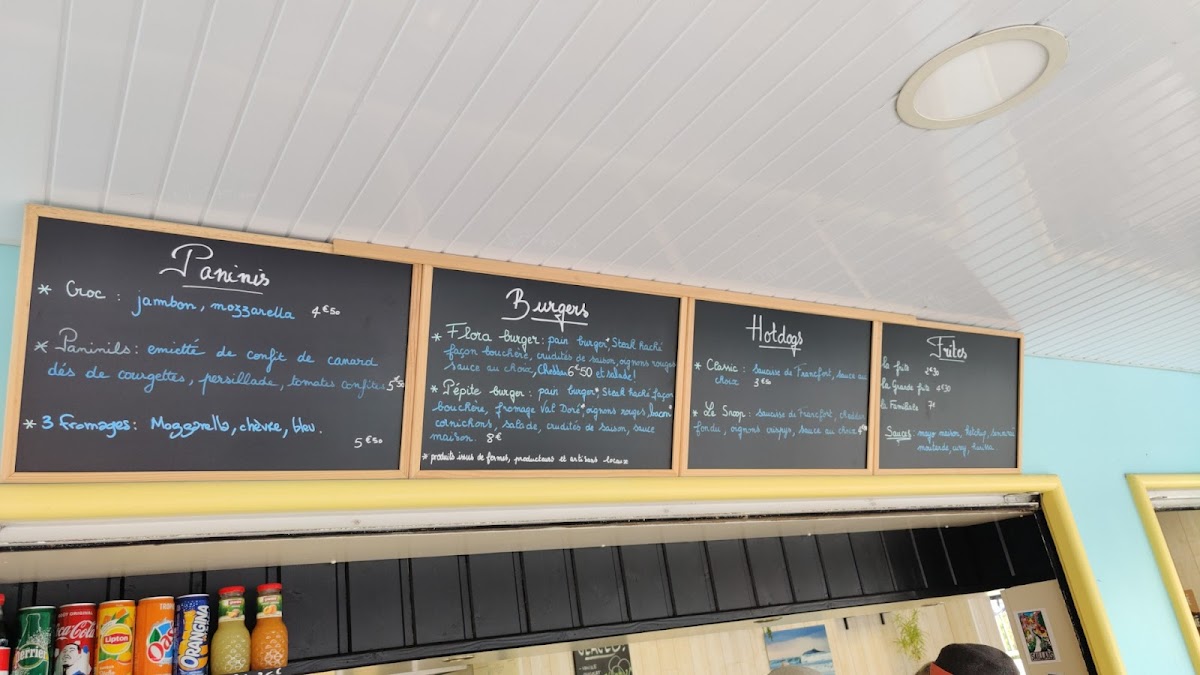 Paninis
* Croc : jambon, mozzarella 4€50
* Paninils : emietté de confit de canard
dés de courgettes, persillade, tomates confites 5€50
* 3 Fromages : Mozzarella, chèvre, bleu.
5€50
Burgers
* Flora burger : pain burger*, Steak haché
façon bouchère, crudités de saison, oignons rouges
sauce au choix, Cheddar 6€50 et salade !
* Pépite burger : pain burger* Steak haché façon
bouchère, fromage Val Doré* oignons rouges, bacon
cornichons, salade, crudités de saison, sauce
maison. 8€
* produits issus de fermes, producteurs et artisans locaux
Hotdogs
* Classic : saucisse de Francfort, sauce au
choix 3€50
* Le Snop : saucisse de Francfort, cheddar
fondu, oignons crispys, sauce au choix
Frites
La ptite 2€30
La Grande frite 4€30
La Familiale 7€
Sauces : mayo maison, Ketchup,
moutarde, curry,
perrier
Coca-Cola
Lipton
Oasis
ORANGINA